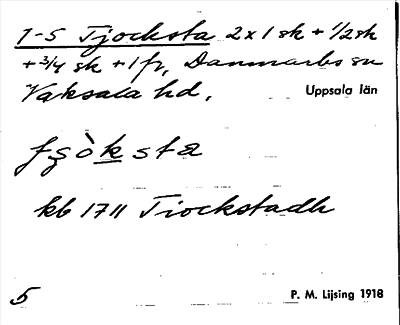 1-5 Tjocksta 2x1 sk + 1/2 sk
+ 3/4 sk + 1 fr, Danmarks sn
Vaksala hd.
Uppsala län
kb 1711 Tiockstadh
5
P. M. Lijsing 1918